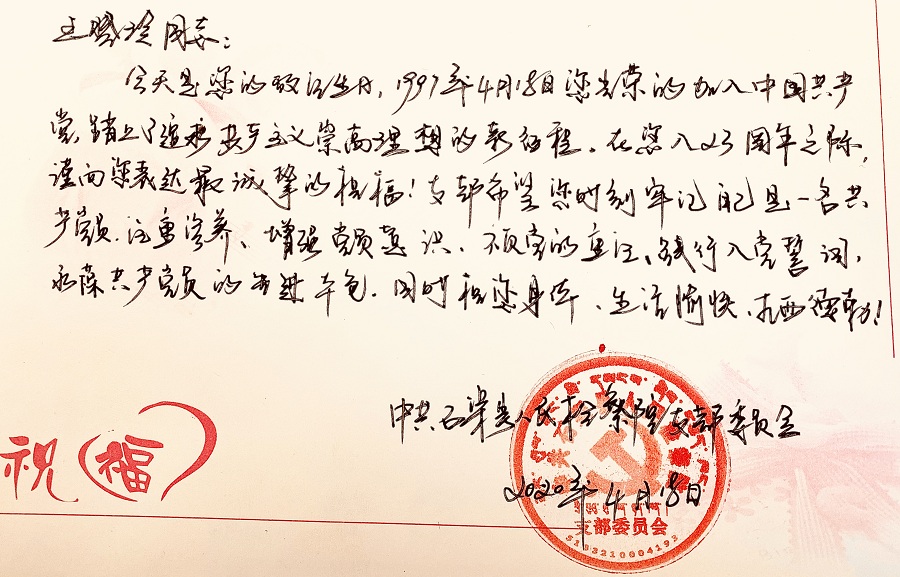 王晓琼同志：
今天是您的政治生日，1997年4月18日您光荣的加入中国共产
党，踏上了追求共产主义崇高理想的新征程。在您入党23周年之际，
谨向您表达最诚挚的祝福！支部希望您时刻牢记自己是一名共
产党员，注重修养、增强党员意识、不负党的重任、践行入党誓词，
永葆共产党员的先进本色。同时祝您身体、生活愉快、扎西德勒！
中共石渠县人民检察院支部委员会
2020年4月18日
祝福
支部委员会
5133210004193